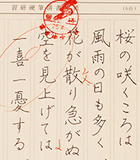 桜の咲くころは
風雨の日も多く、
花が散り急がぬ
空を見上げては
一喜一憂する